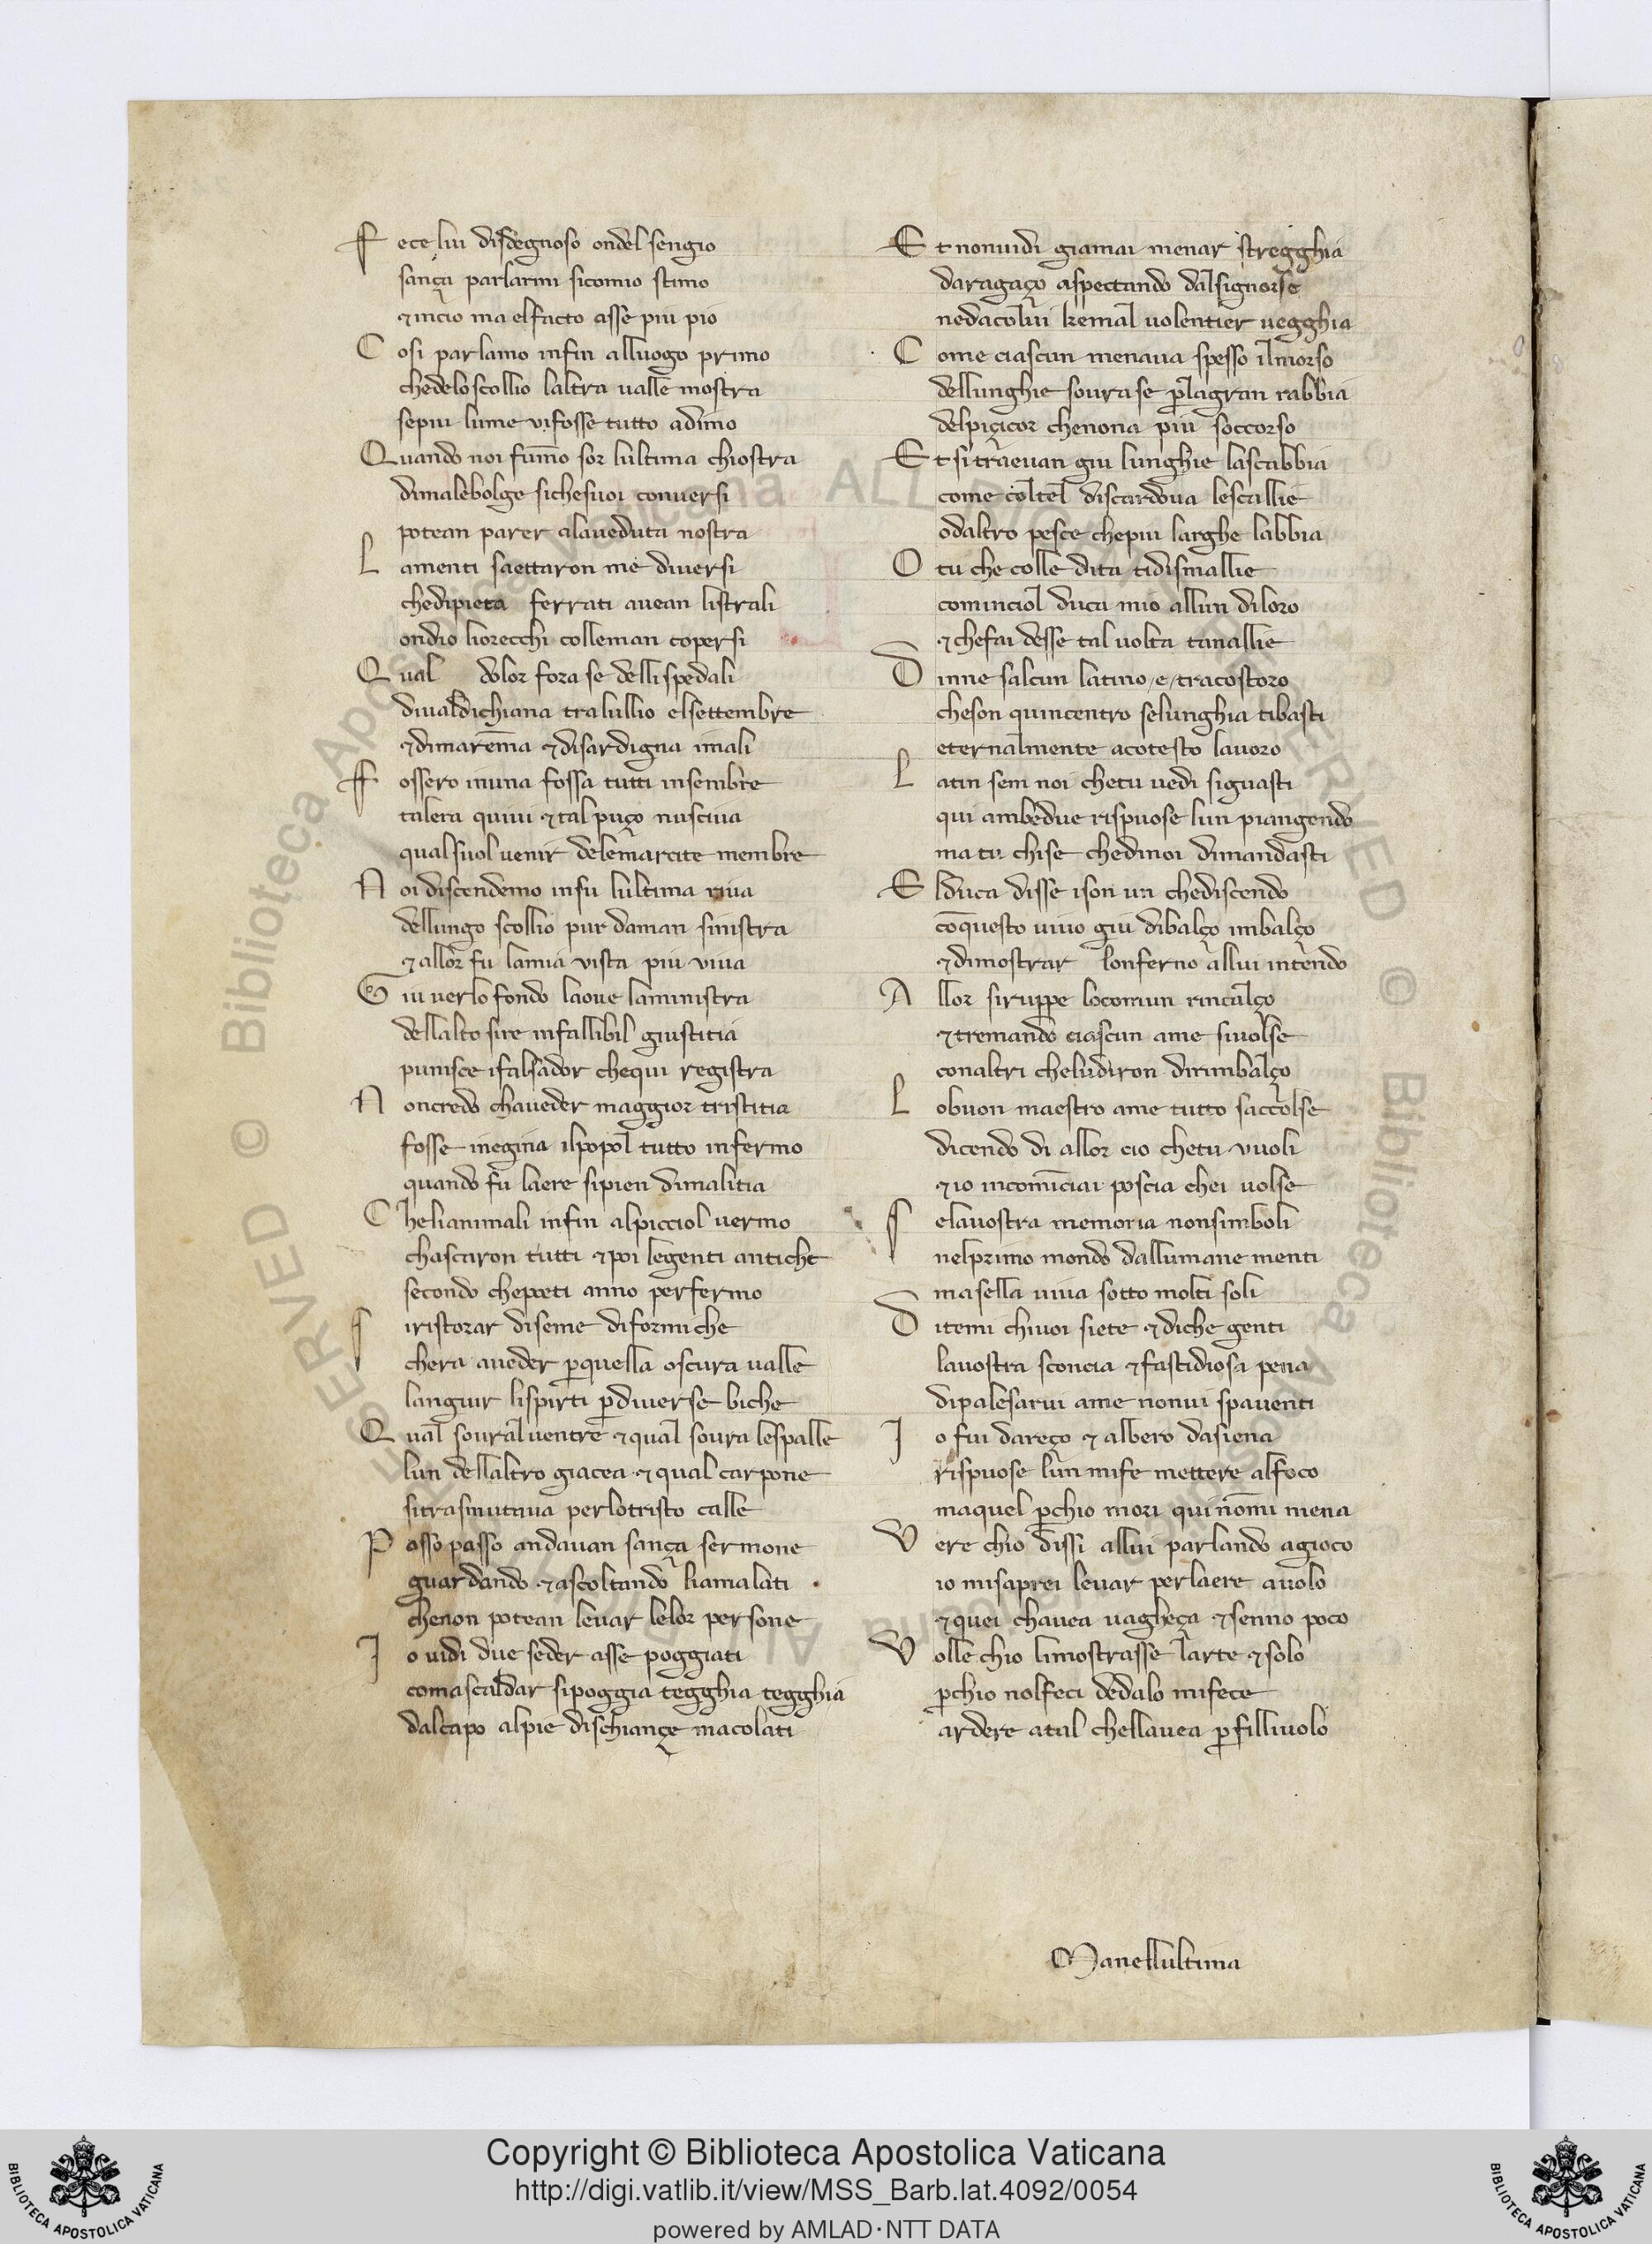 F ece lui disdegnoso ondel sengio
sança parlarmi sicomio stimo
⁊ incio ma elfacto asse piu pio
C osi parlamo infin alluogo primo
chedeloscollio laltra ualle mostra
sepiu lume vifosse tutto adimo
Q uando noi fum̄o sor lultima chiostra
dimalebolge sichesuoi conuersi
potean parer alaueduta nostra
L amenti saettaron me diuersi
chedipieta ferrati auean listrali
ondio liorecchi colleman copersi
Q ual dolor fora se delli spedali
diualdichiana tralullio elsettembre
⁊dimarem̄a ⁊disardigna imali
F ossero inuna fossa tutti insembre
talera quiui ⁊tal puço nusciua
qualsuol uenir delemarcite membre
N oi discendemo insu lultima riua
dellungo scollio pur daman sinistra
⁊allor fu lamia vista piu viua
G iu uerlo fondo laoue laministra
dellalto sire infallibil giustitia
punisce ifalsador chequi registra
N oncredo chaueder maggior tristitia
fosse inegina ilpopol tutto infermo
quando fu laere sipien dimalitia
C helianimali infin alpicciol uermo
chascaron tutti ⁊poi legenti antiche
secondo chepoeti anno perfermo
S iristorar diseme diformiche
chera aueder ꝑquella oscura ualle
languir lispirti ꝑdiuerse biche
Q ual soural uentre ⁊qual soura lespalle
lun dellaltro giacea ⁊qual carpone
sitrasmutaua perlotristo calle
P asso passo andauan sança sermone
guardando ⁊ascoltando liamalati
chenon potean leuar lelor persone
I o uidi due seder asse poggiati
comascaldar sipoggia tegghia tegghia
dalcapo alpie dischiançe macolati
E t nonuidi giamai menar stregghia
daragaço aspectando dalsignorse
nedacolui kemal uolentier uegghia
C ome ciascun menaua spesso ilmorso
dellunghie sourase ꝑlagran rabbia
delpiçicor chenona piu soccorso
E t si traeuan giu lunghie lascabbia
come coltel discardoua lescallie
odaltro pesce chepiu larghe labbia
O tu che colle dita tidismallie
cominciol duca mio allun diloro
⁊chefai desse tal uolta tanallie
D inne salcun latino /e/ tracostoro
cheson quincentro selunghia tibasti
eternalmente acotesto lauoro
L atin sem noi chetu uedi siguasti
qui ambedue rispuose lun piangendo
ma tu chise chedinoi dimandasti
E lduca disse ison un chediscendo
cōquesto uiuo giu dibalço imbalço
⁊dimostrar lonferno allui intendo
A llor siruppe locomun rincalço
⁊tremando ciascun ame siuolse
conaltri cheludiron dirimbalço
L obuon maestro ame tutto saccolse
dicendo di allor cio chetu vuoli
⁊io incominciai poscia chei uolse
S elauostra memoria nonsimboli
nelprimo mondo dallumane menti
masella uiua sotto molti soli
D itemi chiuoi siete ⁊diche genti
lauostra sconcia ⁊fastidiosa pena
dipalesarui ame nonui spauenti
I o fui dareço ⁊ albero dasiena
rispuose lun mife mettere alfoco
maquel ꝑchio mori qui nōmi mena
V ere chio dissi allui parlando agioco
io misaprei leuar perlaere auolo
⁊quei chauea uagheça ⁊senno poco
V olle chio limostrasse larte ⁊solo
ꝑchio nolfeci dedalo mifece
ardere atal chellauea ꝑfilliuolo
Manellultima
Copyright © Biblioteca Apostolica Vaticana
http://digi.vatlib.it/view/MSS_Barb.lat.4092/0054
powered by AMLAD·NTT DATA
BIBLIOTECA APOSTOLICA VATICANA
BIBLIOTECA APOSTOLICA VATICANA